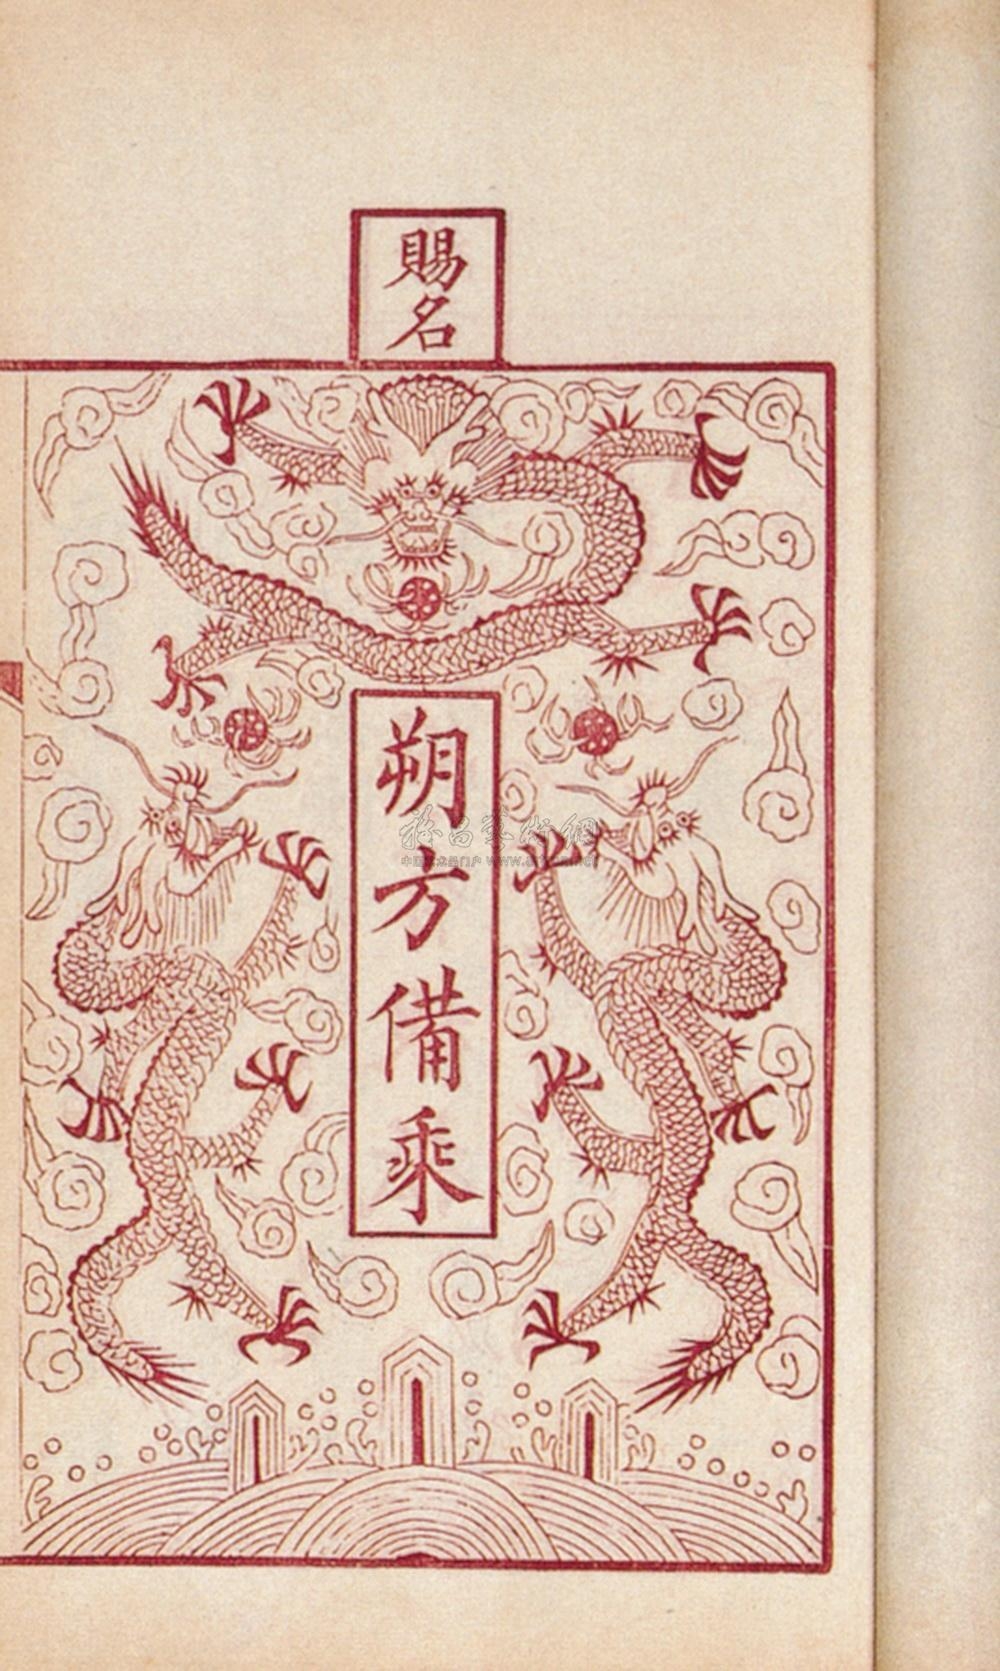 賜名
朔方備乘